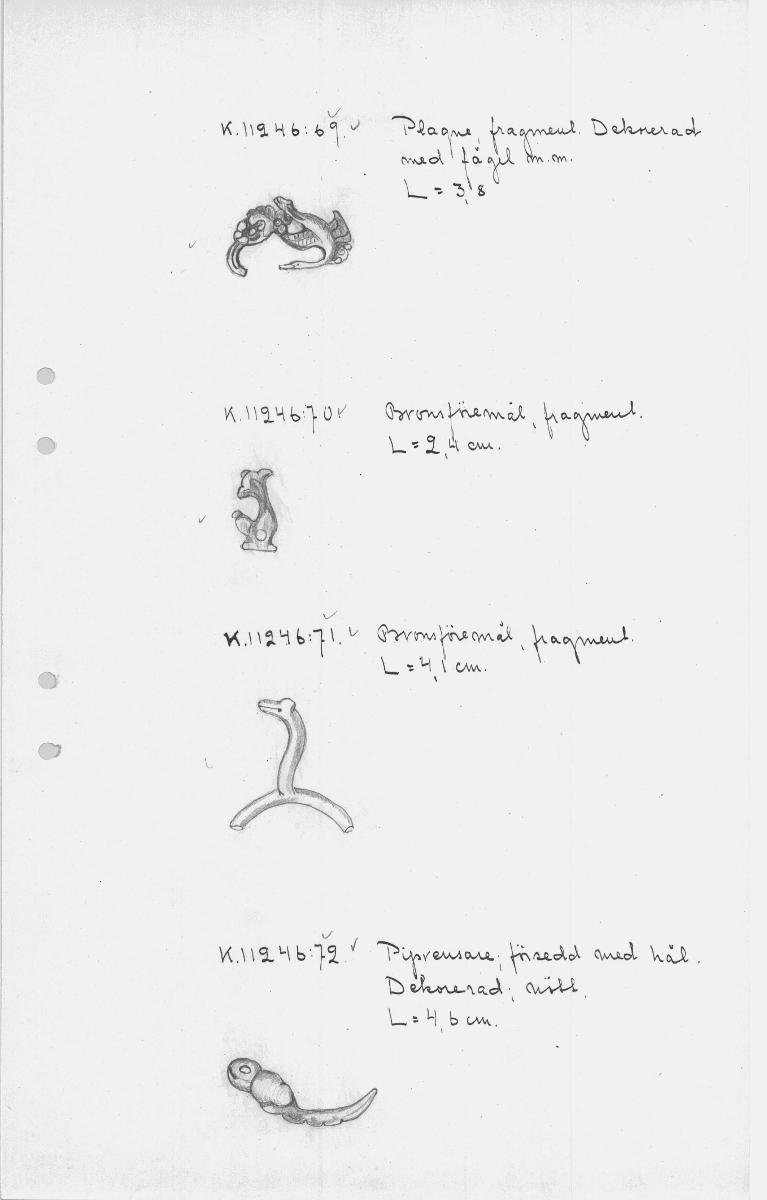 K.11246:69. Plaque, fragment. Dekorerad
med fågel m.m.
L = 3,8
K.11246:70. Bronsföremål, fragment.
L = 2,4 cm.
K.11246:71. Bronsföremål, fragment.
L = 4,1 cm.
K.11246:72. Piprensare; försedd med hål.
Dekorerad; nött.
L = 4,6 cm.